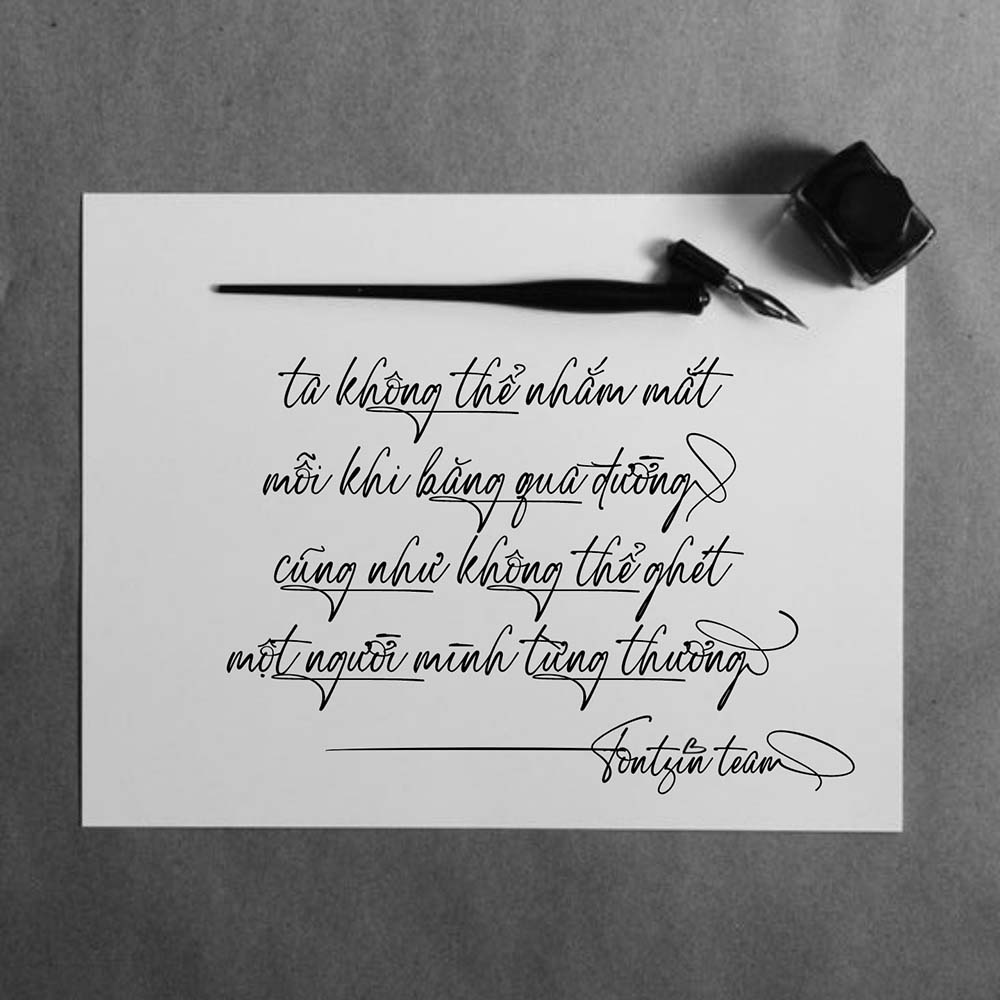 ta không thể nhắm mắt
mỗi khi băng qua đường
cũng như không thể ghét
một người mình từng thương
Fontzin team